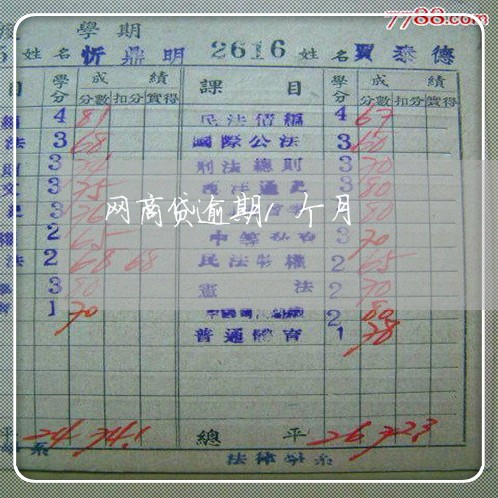 7788.com
學期
姓名 忻鼎明 2616 姓名 賈泰德
目 學分 成績 課目 學分 成績
分數 扣分 實得 分數 扣分 實得
4 81 民法債編 4 67
法 3 68 國際公法 3 60
3 刑法總則 3 70
文 3 75 3 80
3
網商貸逾期1个月
權 2 65 3 70
法 2 68 68 民法物權 2 65
3 80 憲法 2 70
育 1 70 2 80
普通體育 1 78
平 24 74.1 總平 26 72.3
系 法律學系